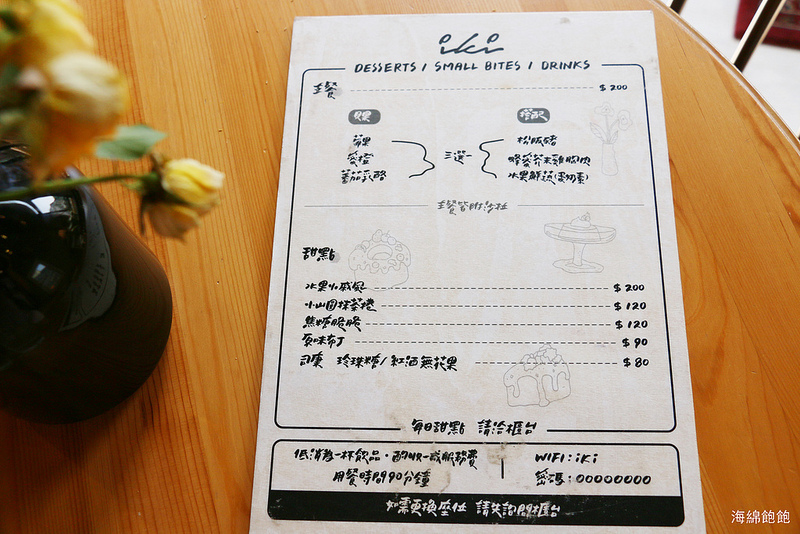 iki
DESSERTS / SMALL BITES / DRINKS
主餐 $200
貝果 搭配
蘋果 松阪豬
愛橙 三選一 蜂蜜芥末雞胸肉
蕃茄乳酪 水果鮮蔬(蛋奶素)
主餐皆附沙拉
甜點
水果小戚風 $200
小山園抹茶捲 $120
焦糖脆脆 $120
原味布丁 $90
司康 珍珠糖/紅酒無花果 $80
每日甜點 請洽櫃台
低消為一杯飲品・酌收一成服務費 WIFI:iki
用餐時間90分鐘 密碼:00000000
如需更換座位 請先詢問櫃台
海綿飽飽